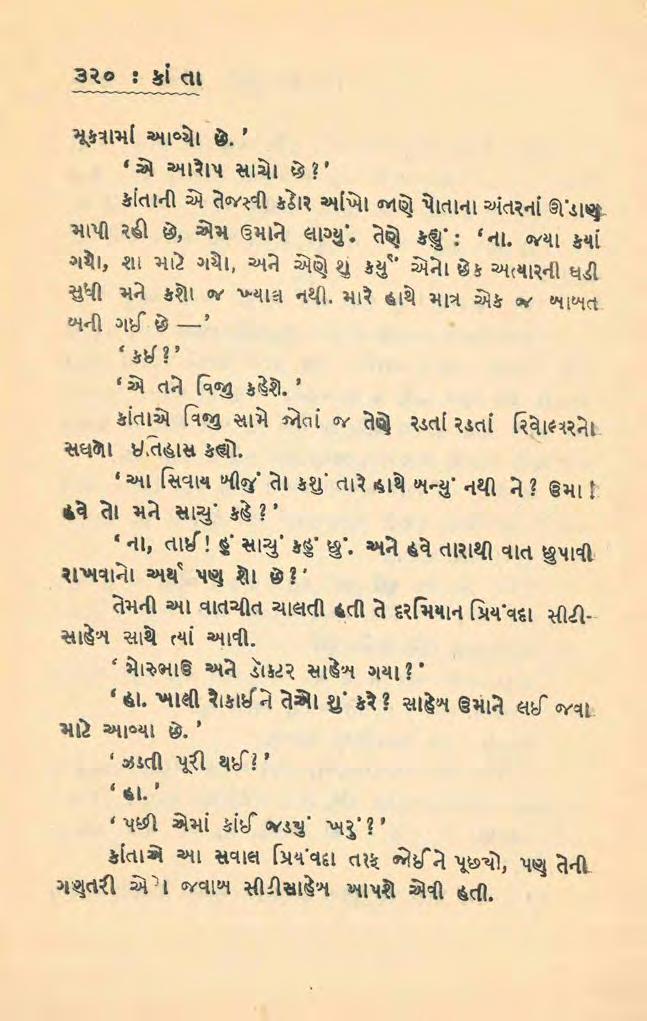 ૩૨૦ : કાં તા
મૂકવામાં આવ્યો છે.’
‘એ આરોપ સાચો છે ?’
કાંતાની એ તેજસ્વી કઠોર આંખો જાણે પોતાના અંતરનાં ઊંડાણ
માપી રહી છે, એમ ઉમાને લાગ્યું. તેણે કહ્યું : ‘ના. જયા કયાં
ગયો, શા માટે ગયો, અને એણે શું કર્યું એનો છેક અત્યારની ઘડી
સુધી મને કશો જ ખ્યાલ નથી. મારે હાથે માત્ર એક જ બાબત
બની ગઈ છે —’
‘કઈ ?’
‘એ તને વિજુ કહેશે.’
કાંતાએ વિજુ સામે જોતાં જ તેણે રડતાં રડતાં રિવોલ્વરનો
સઘળો ઇતિહાસ કહ્યો.
‘આ સિવાય બીજું તો કશું તારે હાથે બન્યું નથી ને ? ઉમા !
હવે તો મને સાચું કહે ?’
‘ના, તાઈ ! હું સાચું કહું છું. અને હવે તારાથી વાત છુપાવી
રાખવાનો અર્થ પણ શો છે ?’
તેમની આ વાતચીત ચાલતી હતી તે દરમિયાન પ્રિયંવદા સીટી-
સાહેબ સાથે ત્યાં આવી.
‘મોરુભાઉ અને ડૉક્ટર સાહેબ ગયા ?’
‘હા. ખાલી રોકાઈને તેઓ શું કરે ? સાહેબ ઉમાને લઈ જવા
માટે આવ્યા છે.’
‘ઝડતી પૂરી થઈ ?’
‘હા.’
‘પછી એમાં કાંઈ જડયું ખરું ?’
કાંતાએ આ સવાલ પ્રિયંવદા તરફ જોઈને પૂછયો, પણ તેની
ગણતરી એનો જવાબ સીટીસાહેબ આપશે એવી હતી.